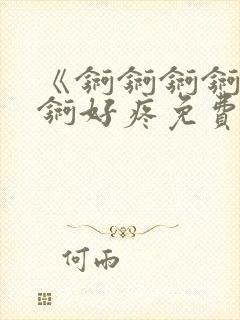 《锕锕锕锕
锕好疼免費
何雨